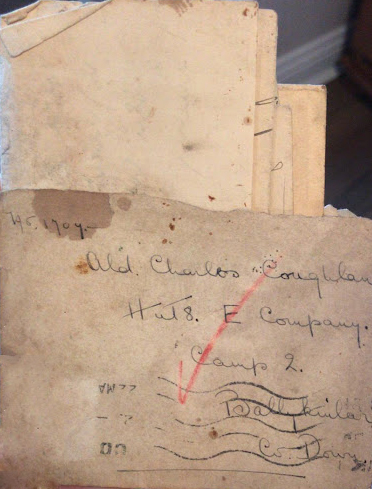 No. 1704
Ald. Charles Coughlan
Hut 8. E Company.
Camp 2.
Ballykinlar
Co. Down.